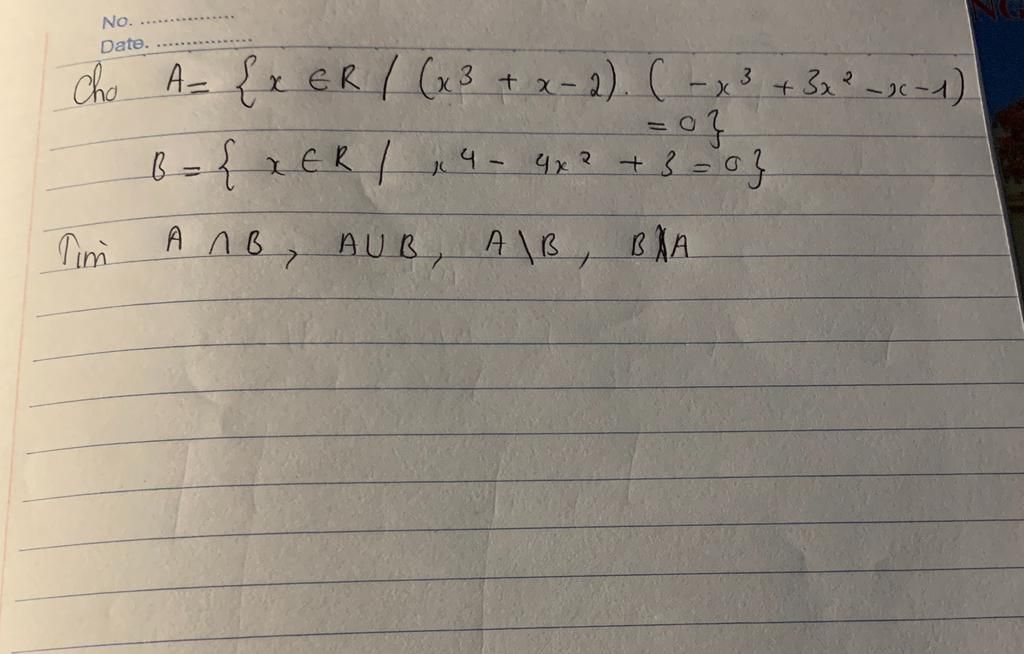 No. ................
Date. ................
Cho A = { x ∈ R / (x³ + x - 2). ( -x³ + 3x² - x - 1)
= 0 }
B = { x ∈ R / x⁴ - 4x² + 3 = 0 }
Tìm A ∩ B, A ∪ B, A \ B, B \ A